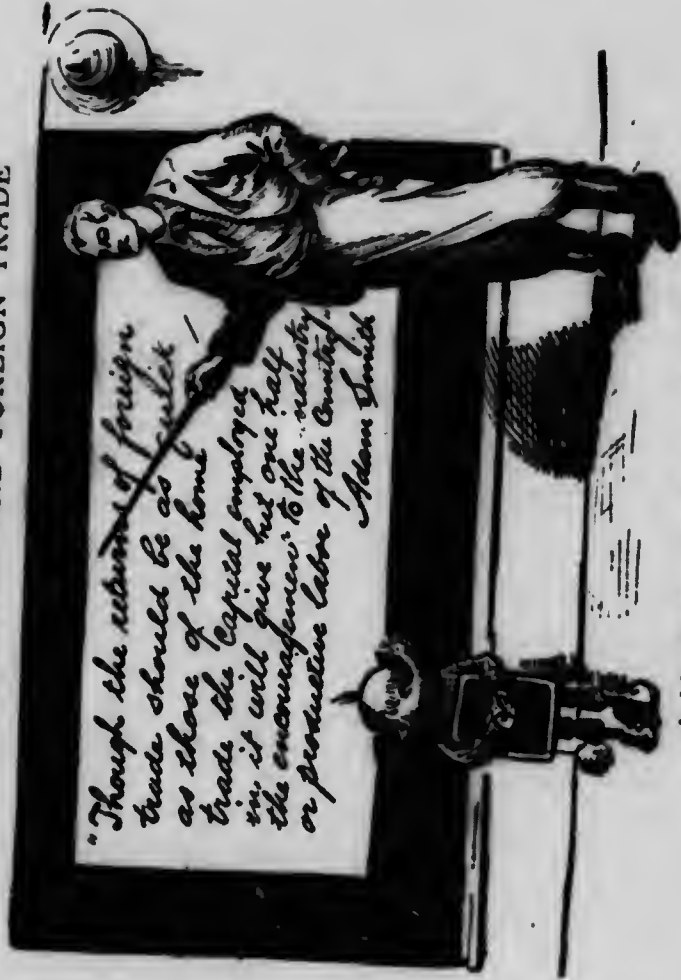 FOREIGN TRADE
"Though the returns of foreign
trade should be as quick
as those of the home
trade the Capital employed
in it will give but one half
the encouragement to the industry
or productive labor of the Country."
Adam Smith